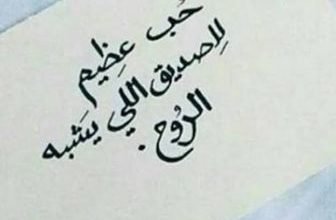 حُب عظِيم
لِلصديق اللّي يَشبه
الرُوح .